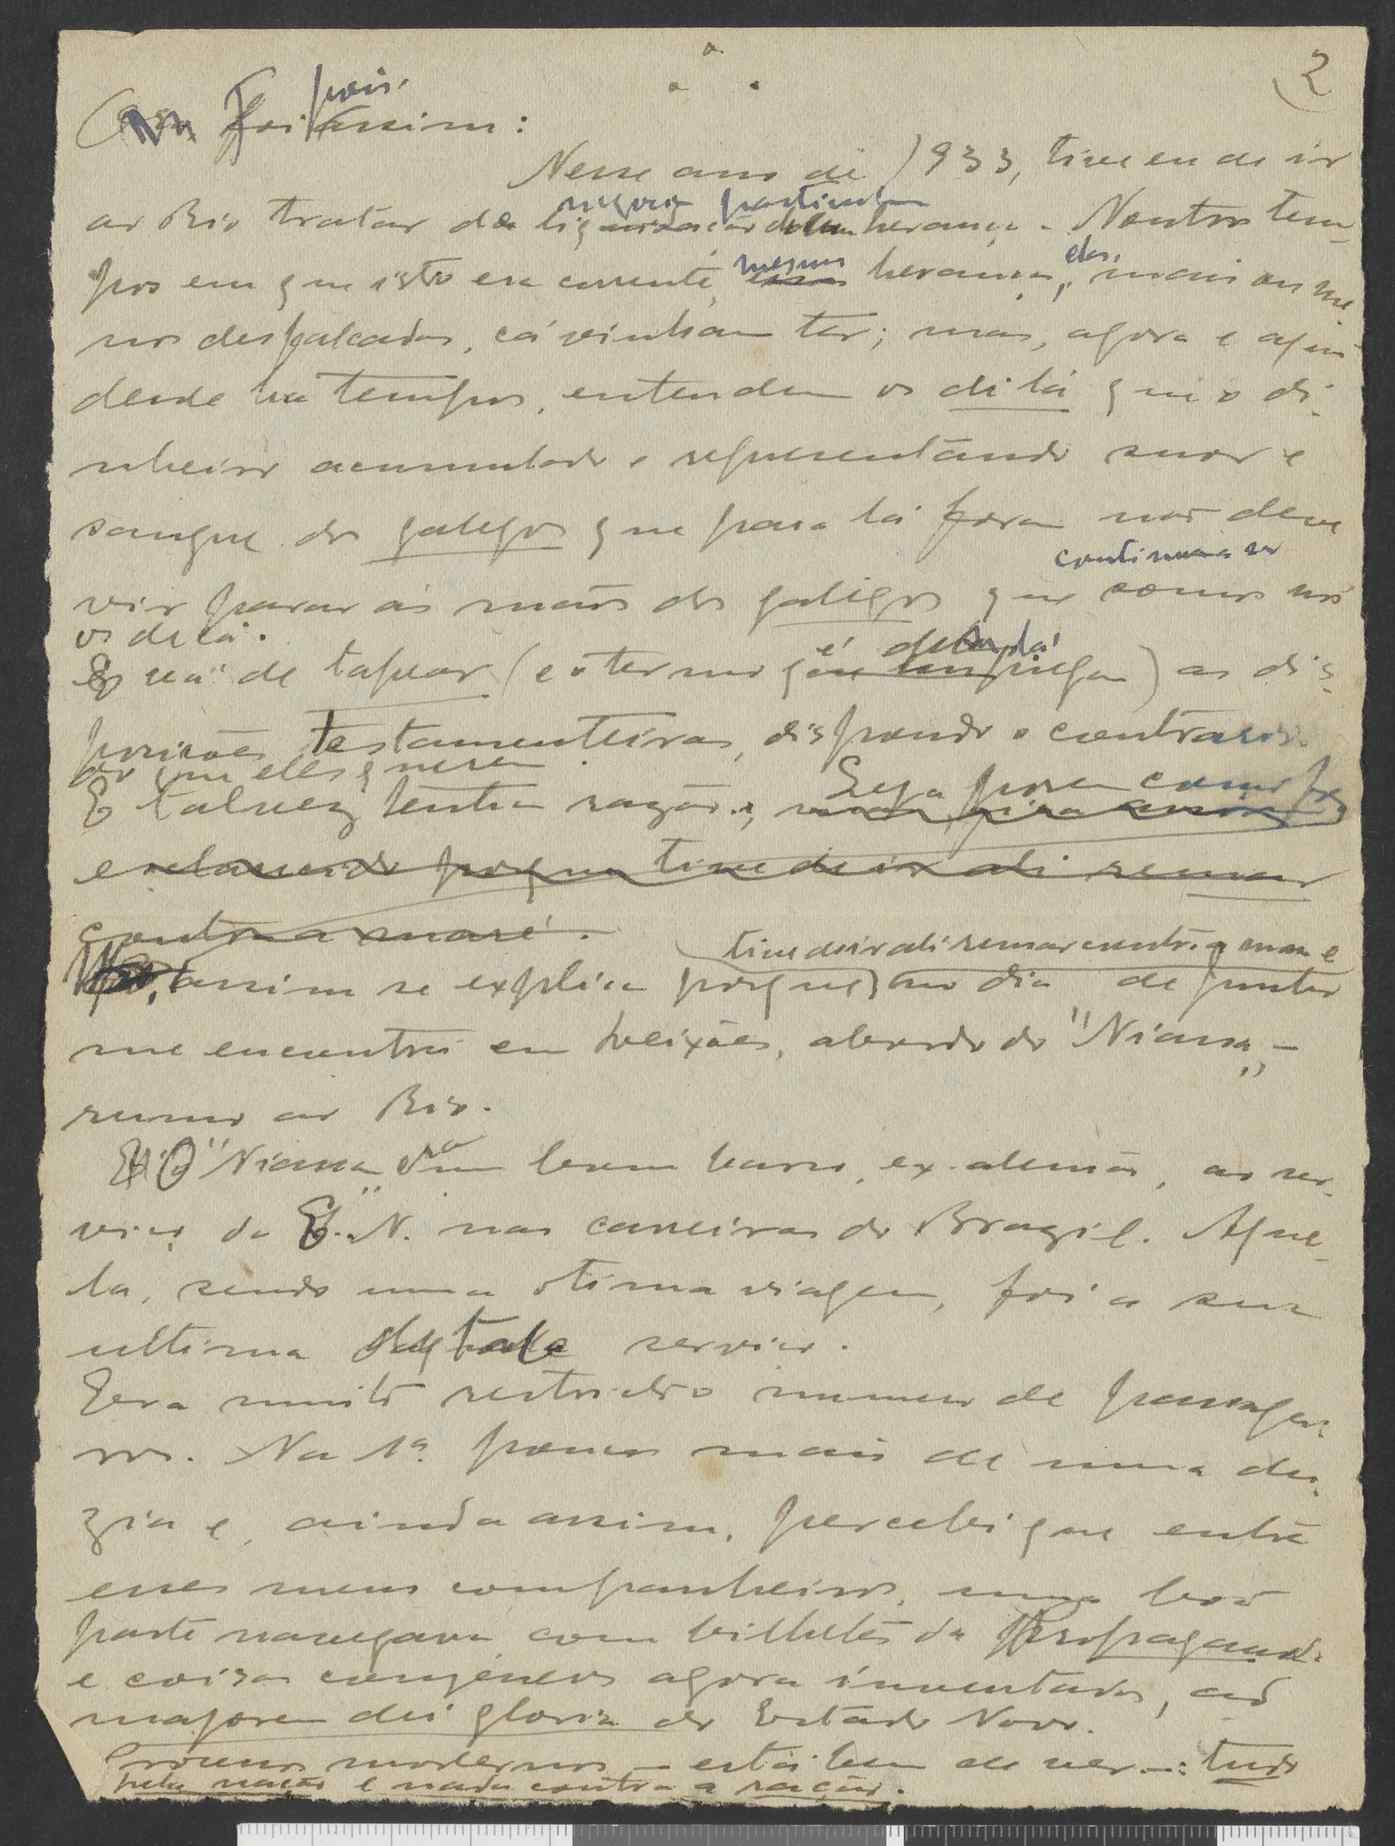 2
foi pois assim:
Nesse ano de 1933, tive eu de ir
ao Rio tratar da negocio particular herança. Noutros tem-
pos em que isto era corrente, mesmo heranças, elas, mais ou me-
nos desfalcadas, cá vinham ter; mas, agora e
desde ha tempos, entendem os de lá que o di-
nheiro acumulado e representando suor e
sangue dos galegos que para lá foram não deve
vir parar ás mãos dos galegos que continuam a ser somos nós
os de cá.
de tapear (e o termo é de lá) as dis-
posições testamenteiras, dispondo o contrario
do que eles querem.
E talvez tenham razão. Seja porem como fôr
esclarecido porque tive de ir ali remar
contra a maré.
assim se explica porque tive de ir ali remar contra a maré no dia de junho
me encontrei em Leixões, abordo do "Niassa" –
rumo ao Rio.
O "Niassa" um bom barco, ex-alemão, ao ser-
viço da C. N. nas carreiras do Brazil. Aque-
la, sendo uma otima viagem, foi a sua
ultima deste serviço.
Era muito restricto o numero de passagei-
ros. Na 1ª pouco mais de uma du-
zia e, ainda assim, percebi que entre
esses meus companheiros, uma bôa
parte navegava com bilhetes da Propaganda
e coisas congéneres agora inventadas, ad
majorem dei gloria do Estado Novo.
Processos modernos – está bem de ver –: tudo
pela nação e nada contra a nação.